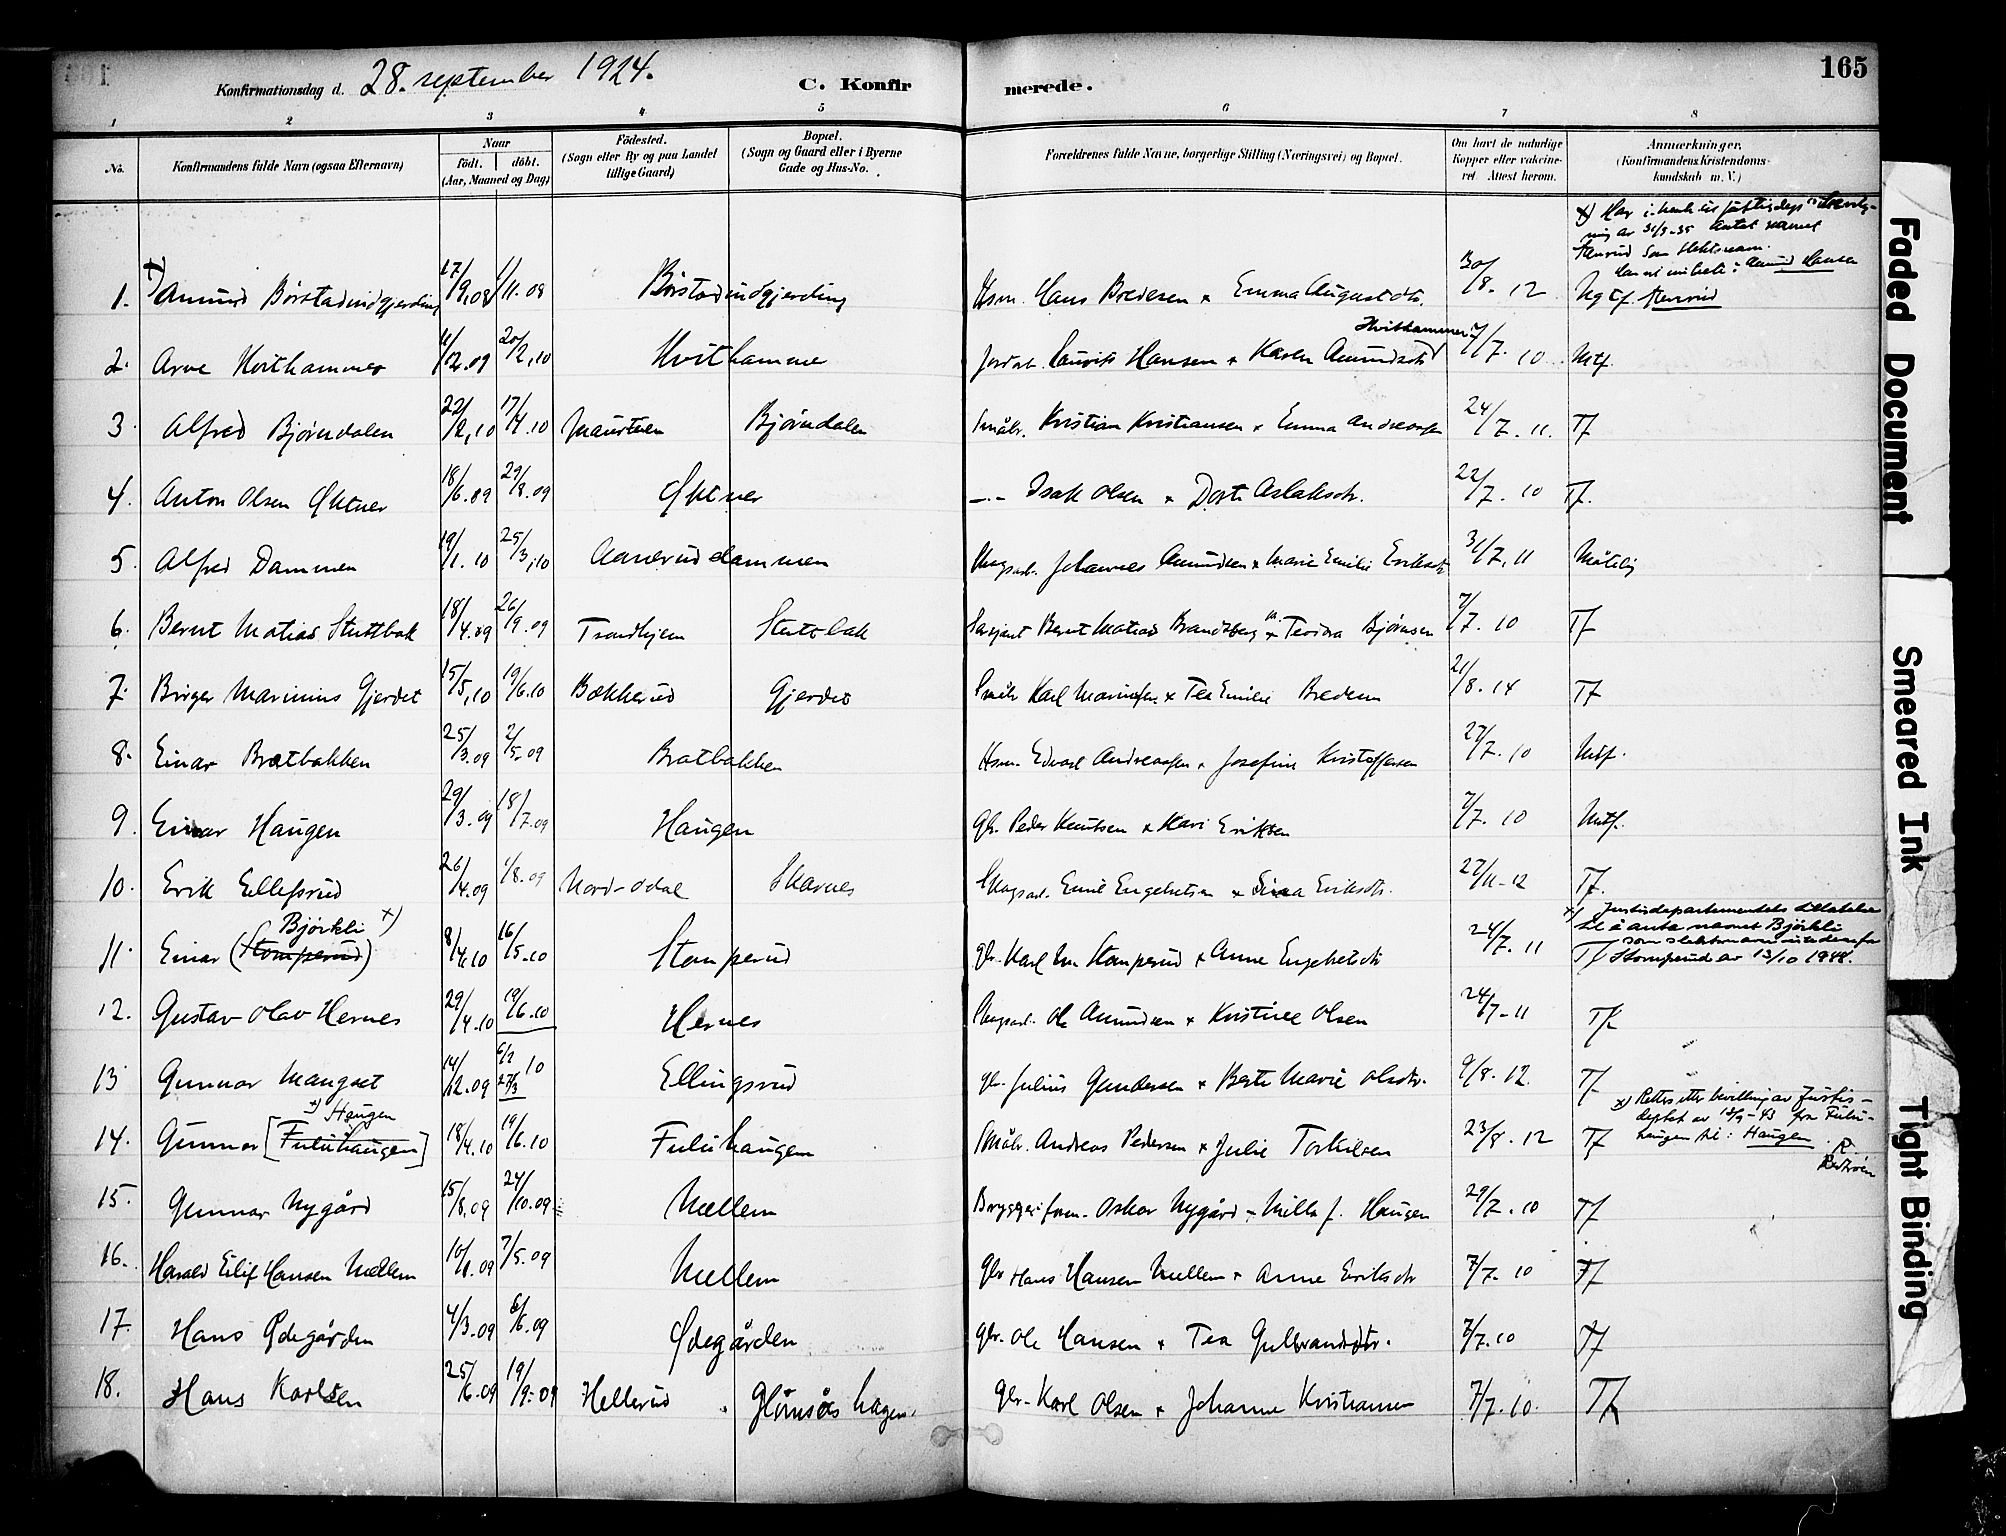 Konfirmationsdag d. 28. september 1924. C. Konfirmerede. 165
1 2 3 4 5 6 7 8
No. Konfirmandens fulde Navn (ogsaa Efternavn) Naar födt. döbt. (Aar, Maaned og Dag) Födested. (Sogn eller By og paa Landet tillige Gaard) Bopæl. (Sogn og Gaard eller i Byerne Gade og Hus-No. Forældrenes fulde Navne, borgerlige Stilling (Næringsvei) og Bopæl. Om havt de naturlige Kopper eller vakcineret. Attest herom. Anmærkninger. (Konfirmandens Kristendomskundskab m. V.)
x) Har i henh. til
ning av 31/3-35 antat navnet
Renrud som slektsnavn.
Amund Hansen
1. x) Amund Børstadindgjerding 17/9.08 1/11.08 Børstadindgjerding Hsm. Hans Bredesen x Emma Augustdtr. 30/8.12 Mgtf. Renrud
Hvithammer
2. Arne Hvithammer 11/12.09 20/2.10 Hvithammer Jordarb. Laurits Hansen x Karen Amundsdtr 7/7.10 Mtf.
3. Alfred Bjørndalen 22/2.10 17/4.10 Maurtuen Bjørndalen Småbr. Kristian Kristiansen x Emma Andreassen 24/7.11. Tf
4. Anton Olsen Øktner 18/6.09 29/8.09 Øktner -.- Isak Olsen x Dorte Aslaksdtr. 22/7.10 Tf.
5. Alfred Dammen 19/1.10 25/3.10 Aanerud dammen Skogsarb. Johannes Amundsen x Marie Emilie Eriksdtr 31/7.11 Måtelig
6. Bernt Matias Stuttbak 18/4.09 26/9.09 Trondhjem Stutbak Sersjant Bernt Matias Brandsberg x Teodora Bjørnsen 7/7.10 Tf
7. Birger Marinius Gjerdet 15/5.10 19/6.10 Bækkerud Gjerdet Småbr Karl Marinsen x Tea Emilie Bredesen 21/8.14 Tf
8. Einar Bratbakken 25/3.09 2/5.09 Bratbakken Hsm. Edvard Andreassen x Josefine Kristoffersen 27/7.10 Mtf.
9. Einar Haugen 29/3.09 18/7.09 Haugen Gbr. Peder Knutsen x Kari Eriksen 7/7.10 Mtf.
10. Erik Ellefsrud 26/4.09 1/8.09 Nord-Odal Skarnes Skogsarb. Emil Engebretsen x Eriksdtr. 27/11-12 Tf.
Bjørkli x) x) Justisdepartementets tillatelse
til å anta navnet Bjørkli
som slektsnavn istedenfor
11. Einar (Stomperud) 8/4.10 16/5.10 Stomperud Gbr. Karl Stomperud x Anne Engebretsdtr 24/7.11 Tf Stomperud av 13/10 1948.
12. Gustav Olav Hernes 29/4.10 19/6.10 Hernes Skogsarb. Ole Amundsen x Kristine Olsen 24/7-11 Tf
13 Gunnar Mangset 14/12.09 6/2 10 27/3 Ellingsrud Gbr. Julius Gundersen x Berte Marie Olsdtr. 9/8.12. Tf
x) Haugen x) Rettes etter bevilling av Justis-
deptet av 18/9-43 fra Fulu-
14. Gunnar [Fuluhaugen] 18/4.10 19/6.10 Fuluhaugen Småbr. Andreas Pedersen x Julie Torkilsen 23/8.12 Tf haugen til: Haugen.
15. Gunnar Nygård 15/8.09 24/10.09 Mellem Bryggeriform. Oskar Nygård x Milla f. Haugen 29/7.10 Tf
16. Harald Eilif Hansen Mellem 10/1.09 7/5.09 Mellem Gbr Hans Hansen Mellem x Anne Eriksdtr 7/7-10 Tf
17. Hans Ødegården 4/3.09 6/6.09 Ødegården Gbr. Ole Hansen x Tea Gulbrandsdtr. 7/7.10 Tf
18. Hans Karlsen 25/6.09 19/9.09 Hellerud Glömsås hagen. Gbr. Karl Olsen x Johanne Kristiansen 7/7.10. Tf
Faded Document
Smeared Ink
Tight Binding